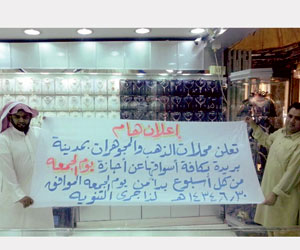 إعلان هام
تعلن محلات الذهب والمجوهرات بمدينة
بريدة بكافة أسواقها عن أجازة يوم الجمعه
من كل أسبوع بدأ من يوم الجمعه الموافق
١٤٣٤/٦/٣٠هـ لذا جرى التنويه